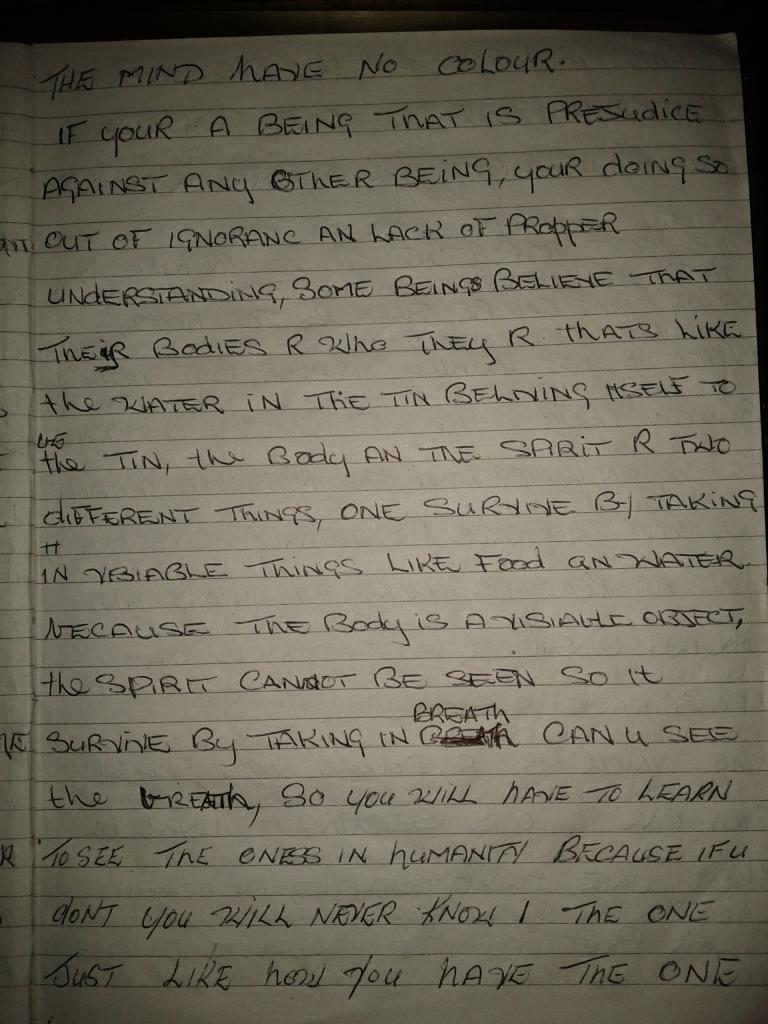 THE MIND HAVE NO COLOUR.
IF YOUR A BEING THAT IS PRESudICE
AGAINST ANY OTHER BEING, YOUR dOING SO
OUT OF IGNORANC AN LACK OF PROPPER
UNDERSTANDING, SOME BEINGS BELIEVE THAT
THEIR BODIES R WHO THEY R. THATS LIKE
the WATER IN THE TIN BELIVING ITSELF TO
BE
the TIN, the Body AN THE SPIRIT R TWO
dIFFERENT THINGS, ONE SURVIVE BY TAKING
IN VISIABLE THINGS LIKE Food AN WATER.
BECAUSE THE Body IS A VISIABLE OBJECT,
the SPIRIT CANNOT BE SEEN SO It
BREATH
SURVIVE By TAKING IN CAN U SEE
the BREATH, SO YOU WILL HAVE TO LEARN
TO SEE THE ONESS IN HUMANITY BECAUSE IF U
dONT YOU WILL NEVER KNOW I THE ONE
JUST LIKE HOW YOU HAVE THE ONE